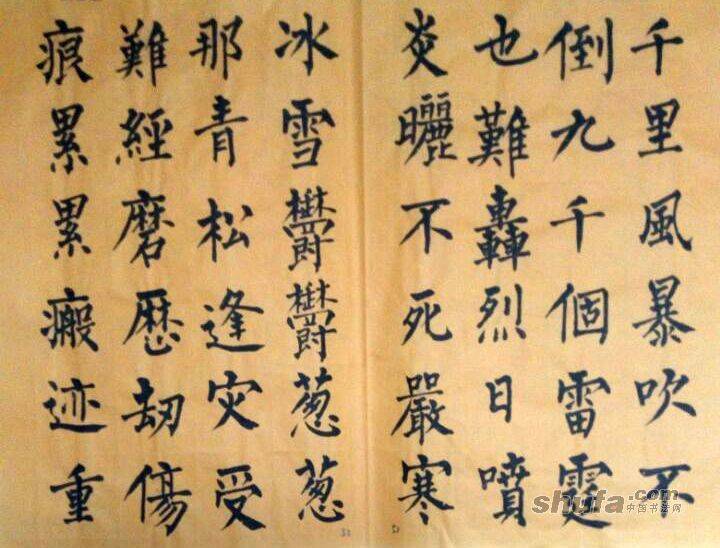 千里風暴吹不
倒九千個雷霆
也難轟烈日噴
炎曬不死嚴寒
冰雪鬱鬱葱葱
那青松逢灾受
難經磨歷劫傷
痕累累瘢迹重
shufa.com
中国书法网